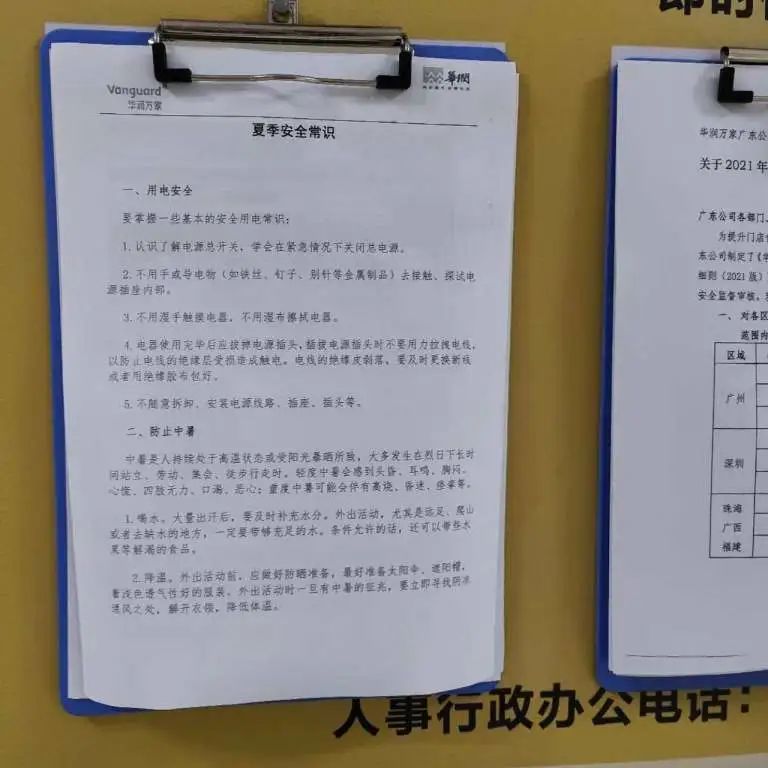 Vanguard
华润万家
華潤
夏季安全常识
一、用电安全
要掌握一些基本的安全用电常识：
1.认识了解电源总开关，学会在紧急情况下关闭总电源。
2.不用手或导电物（如铁丝、钉子、别针等金属制品）去接触、探试电
源插座内部。
3.不用湿手触摸电器，不用湿布擦拭电器。
4.电器使用完毕后应拔掉电源插头，插拔电源插头时不要用力拉拽电线，
以防止电线的绝缘层受损造成触电。电线的绝缘皮剥落，要及时更换新线
或者用绝缘胶布包好。
5.不随意拆卸、安装电源线路、插座、插头等。
二、防止中暑
中暑是人持续处于高温状态或受阳光暴晒所致，大多发生在烈日下长时
间站立、劳动、集会、徒步行走时。轻度中暑会感到头昏、耳鸣、胸闷、
心慌、四肢无力、口渴、恶心；重度中暑可能会伴有高烧、昏迷、痉挛等。
1.喝水。大量出汗后，要及时补充水分。外出活动，尤其是远足、爬山
或者去缺水的地方，一定要带够充足的水。条件允许的话，还可以带些水
果等解渴的食品。
2.降温。外出活动前，应做好防晒准备，最好准备太阳伞、遮阳帽，
着浅色透气性好的服装。外出活动时一旦有中暑的征兆，要立即寻找阴凉
通风之处，解开衣领，降低体温。
华润万家广东公
关于2021年
广东公司各部门、
为提升门店
东公司制定了《
细则（2021版）
安全监督审核。
一、对各区
范围内
区域
广州
深圳
珠海
广西
福建
人事行政办公电话：